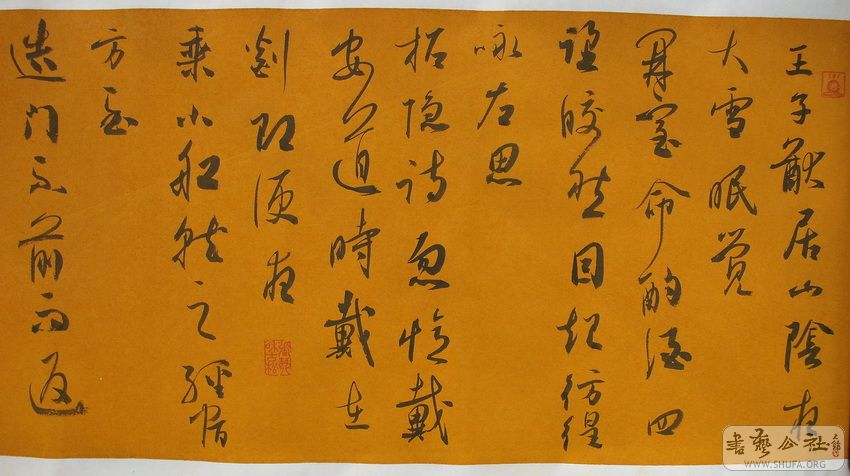 王子猷居山陰夜
大雪眠觉
開室命酌酒四
望皎然因起彷徨
咏左思
招隐诗忽憶戴
安道時戴在
剡即便夜
乘小船就之經宿
方至
造门不前而返
書藝公社
WWW.SHUFA.ORG